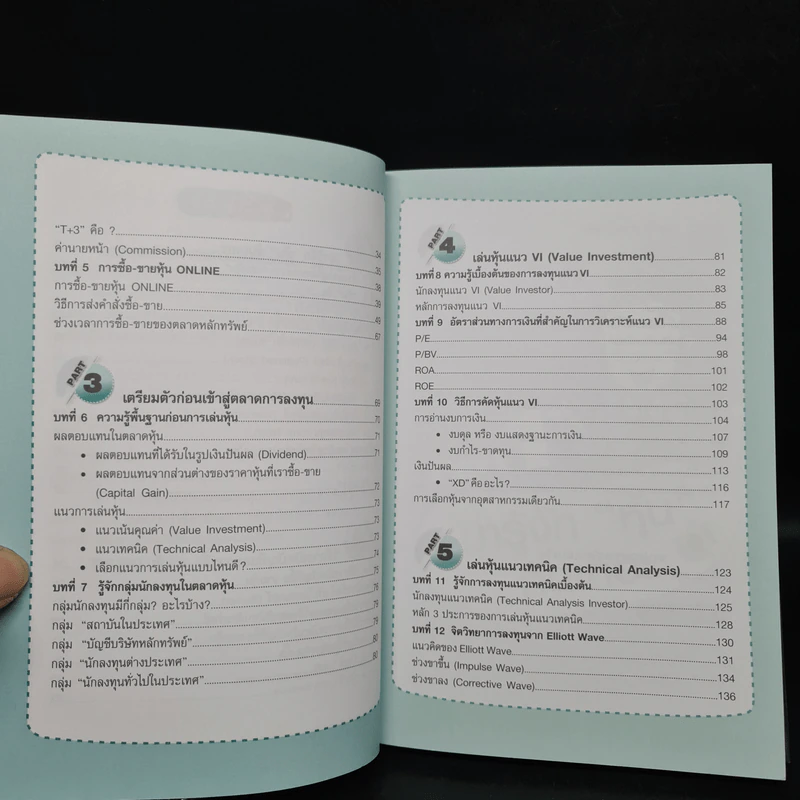 "T+3" คือ ?
ค่านายหน้า (Commission) 34
บทที่ 5 การซื้อ-ขายหุ้น ONLINE 35
การซื้อ-ขายหุ้น ONLINE 38
วิธีการส่งคำสั่งซื้อ-ขาย 39
ช่วงเวลาการซื้อ-ขายของตลาดหลักทรัพย์ 49
67
PART 3 เตรียมตัวก่อนเข้าสู่ตลาดการลงทุน 69
บทที่ 6 ความรู้พื้นฐานก่อนการเล่นหุ้น 70
ผลตอบแทนในตลาดหุ้น 71
• ผลตอบแทนที่ได้รับในรูปเงินปันผล (Dividend) 71
• ผลตอบแทนจากส่วนต่างของราคาหุ้นที่เราซื้อ-ขาย
(Capital Gain) 72
แนวการเล่นหุ้น 73
• แนวเน้นคุณค่า (Value Investment) 73
• แนวเทคนิค (Technical Analysis) 73
• เลือกแนวการเล่นหุ้นแบบไหนดี? 74
บทที่ 7 รู้จักกลุ่มนักลงทุนในตลาดหุ้น 75
กลุ่มนักลงทุนมีกี่กลุ่ม? อะไรบ้าง? 78
กลุ่ม "สถาบันในประเทศ" 79
กลุ่ม "บัญชีบริษัทหลักทรัพย์" 79
กลุ่ม "นักลงทุนต่างประเทศ" 80
กลุ่ม "นักลงทุนทั่วไปในประเทศ" 80
PART 4 เล่นหุ้นแนว VI (Value Investment) 81
บทที่ 8 ความรู้เบื้องต้นของการลงทุนแนว VI 82
นักลงทุนแนว VI (Value Investor) 83
หลักการลงทุนแนว VI 85
บทที่ 9 อัตราส่วนทางการเงินที่สำคัญในการวิเคราะห์แนว VI 88
P/E 94
P/BV 98
ROA 101
ROE 102
บทที่ 10 วิธีการคัดหุ้นแนว VI 103
การอ่านงบการเงิน 104
• งบดุล หรือ งบแสดงฐานะการเงิน 107
• งบกำไร-ขาดทุน 109
เงินปันผล 113
• "XD" คืออะไร? 116
การเลือกหุ้นจากอุตสาหกรรมเดียวกัน 117
PART 5 เล่นหุ้นแนวเทคนิค (Technical Analysis) 123
บทที่ 11 รู้จักการลงทุนแนวเทคนิคเบื้องต้น 124
นักลงทุนแนวเทคนิค (Technical Analysis Investor) 125
หลัก 3 ประการของการเล่นหุ้นแนวเทคนิค 128
บทที่ 12 จิตวิทยาการลงทุนจาก Elliott Wave 130
แนวคิดของ Elliott Wave 131
ช่วงขาขึ้น (Impulse Wave) 134
ช่วงขาลง (Corrective Wave) 136